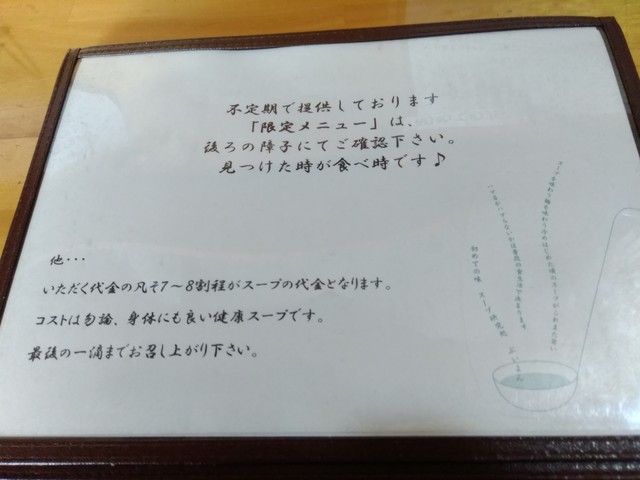 不定期で提供しております
「限定メニュー」は、
後ろの障子にてご確認下さい。
見つけた時が食べ時です♪
他・・・
いただく代金の凡そ7～8割程がスープの代金となります。
コストは勿論、身体にも良い健康スープです。
最後の一滴までお召し上がり下さい。
初めての味 スープ研究処